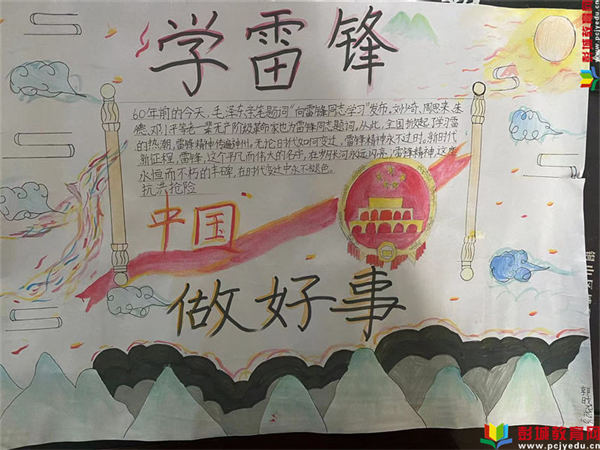 学雷锋
60年前的今天，毛泽东亲笔题词"向雷锋同志学习"发布。刘少奇、周恩来、朱
德、邓小平等老一辈无产阶级革命家也为雷锋同志题词。从此，全国掀起了学习雷
的热潮，雷锋精神传遍神州。无论时代如何变迁，雷锋精神永不过时。新时代
新征程，雷锋，这个平凡而伟大的名字，在岁月长河永远闪亮，雷锋精神，这座
永恒而不朽的丰碑，在时代变迁中永不褪色。
抗洪抢险
中国
做好事
彭城教育网
www.pcjyedu.cn
彭城教育网
www.pcjyedu.cn